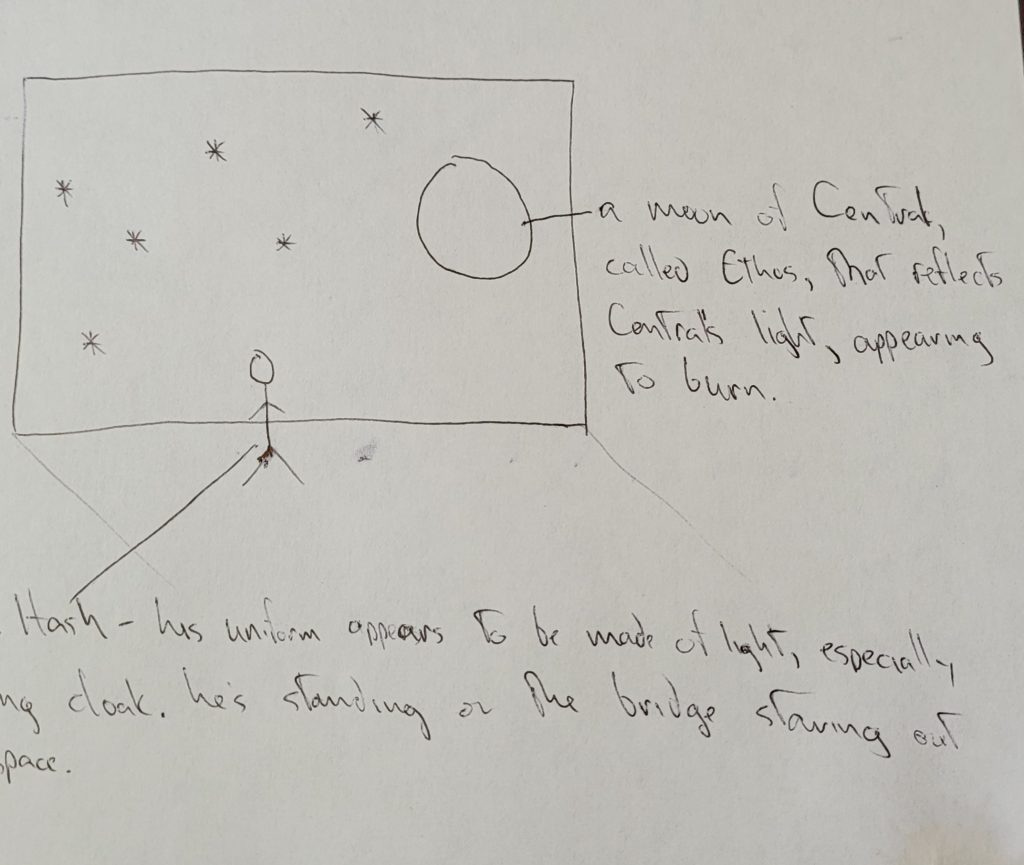 a moon of Central,
called Ethos, that reflects
Central's light, appearing
to burn.
Hash - his uniform appears to be made of light, especially
ng cloak. he's standing on the bridge staring out
space.